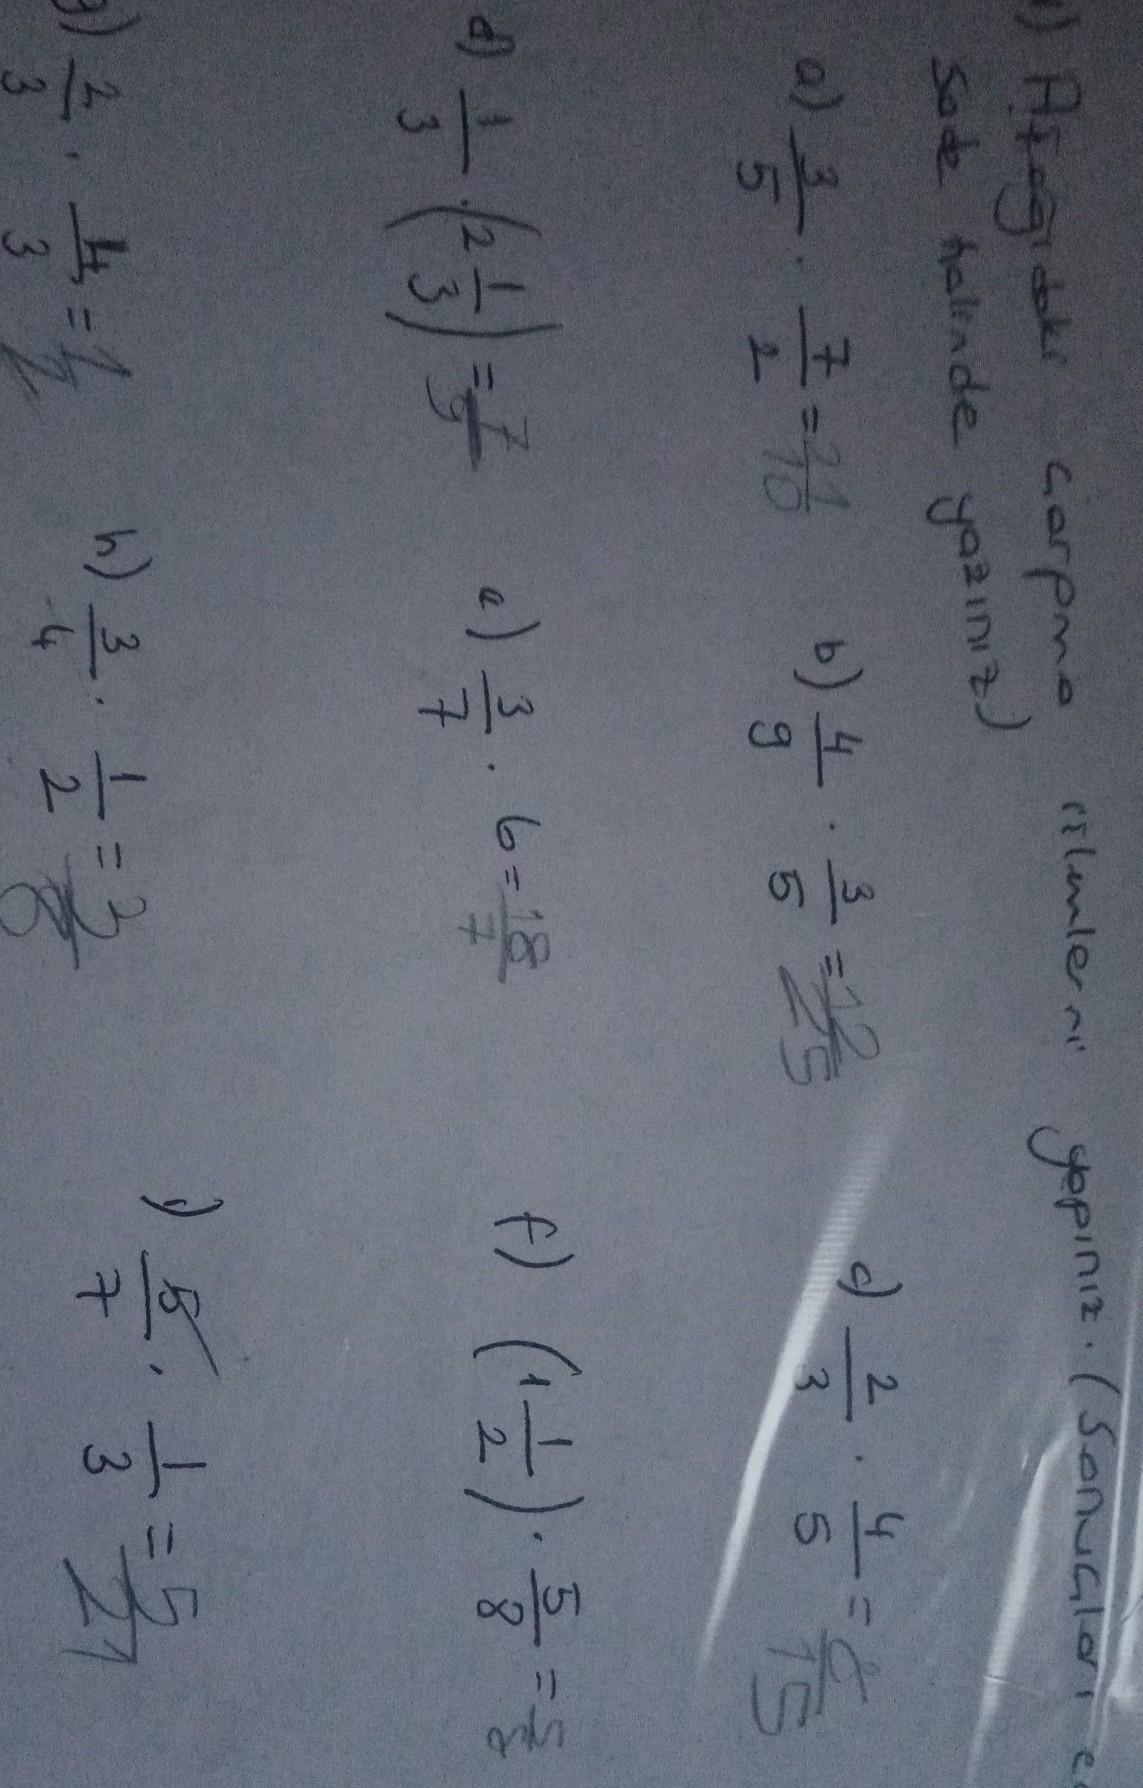 Aşağıdaki çarpma işlemlerni yapınız. (Sonuçları e
sade halinde yazınız)
a) 3/5 · 7/2 = 21/10 b) 4/9 · 3/5 = 12/25 c) 2/3 · 4/5 =
d) 1/3 · (2 1/3) = 7/9 e) 3/7 · 6 = 18/7 f) (1 1/2) · 5/8 =
g) 2/3 · 4/3 = h) 3/4 · 1/2 = 3/8 ı) 5/7 · 1/3 = 5/21